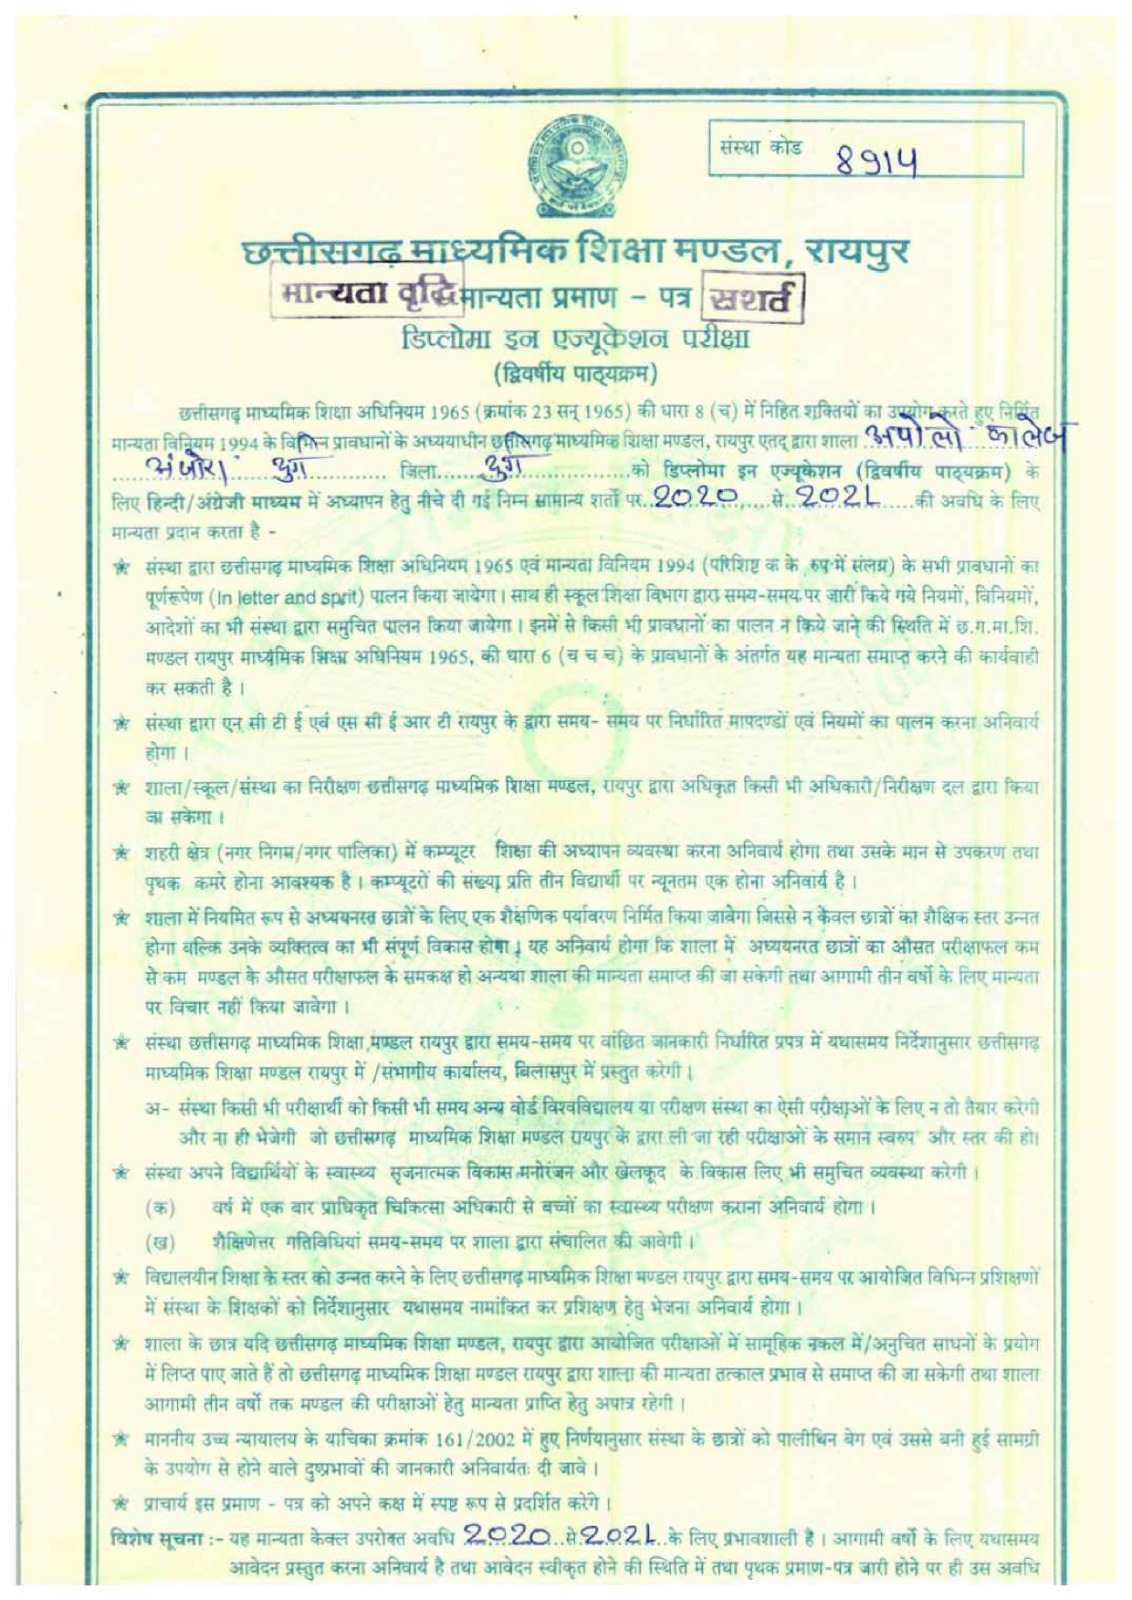 संस्था कोड 8914
छत्तीसगढ़ माध्यमिक शिक्षा मण्डल, रायपुर
मान्यता वृद्धि मान्यता प्रमाण - पत्र सशर्त
डिप्लोमा इन एज्यूकेशन परीक्षा
(द्विवर्षीय पाठ्यक्रम)
छत्तीसगढ़ माध्यमिक शिक्षा अधिनियम 1965 (क्रमांक 23 सन् 1965) की धारा 8 (च) में निहित शक्तियों का उपयोग करते हुए निर्मित
मान्यता विनियम 1994 के विभिन्न प्रावधानों के अध्ययाधीन छत्तीसगढ़ माध्यमिक शिक्षा मण्डल, रायपुर एतद् द्वारा शाला अपोलो कालेज
अंजोरा दुर्ग जिला दुर्ग को डिप्लोमा इन एज्यूकेशन (द्विवर्षीय पाठ्यक्रम) के
लिए हिन्दी/अंग्रेजी माध्यम में अध्यापन हेतु नीचे दी गई निम्न सामान्य शर्तो पर 2020 से 2021 की अवधि के लिए
मान्यता प्रदान करता है -
संस्था द्वारा छत्तीसगढ़ माध्यमिक शिक्षा अधिनियम 1965 एवं मान्यता विनियम 1994 (परिशिष्ट क के रुप में संलग्र) के सभी प्रावधानों का
पूर्णरूपेण (In letter and sprit) पालन किया जायेगा। साथ ही स्कूल शिक्षा विभाग द्वारा समय-समय पर जारी किये गये नियमों, विनियमों,
आदेशों का भी संस्था द्वारा समुचित पालन किया जायेगा। इनमें से किसी भी प्रावधानों का पालन न किये जाने की स्थिति में छ.ग.मा.शि.
मण्डल रायपुर माध्यमिक शिक्षा अधिनियम 1965, की धारा 6 (च च च) के प्रावधानों के अंतर्गत यह मान्यता समाप्त करने की कार्यवाही
कर सकती है।
संस्था द्वारा एन सी टी ई एवं एस सी ई आर टी रायपुर के द्वारा समय- समय पर निर्धारित मापदण्डों एवं नियमों का पालन करना अनिवार्य
होगा।
शाला/स्कूल/संस्था का निरीक्षण छत्तीसगढ़ माध्यमिक शिक्षा मण्डल, रायपुर द्वारा अधिकृत किसी भी अधिकारी/निरीक्षण दल द्वारा किया
जा सकेगा।
शहरी क्षेत्र (नगर निगम/नगर पालिका) में कम्प्यूटर शिक्षा की अध्यापन व्यवस्था करना अनिवार्य होगा तथा उसके मान से उपकरण तथा
पृथक कमरे होना आवश्यक है। कम्प्यूटरों की संख्या प्रति तीन विद्यार्थी पर न्यूनतम एक होना अनिवार्य है।
शाला में नियमित रूप से अध्ययनरत छात्रों के लिए एक शैक्षणिक पर्यावरण निर्मित किया जावेगा जिससे न केवल छात्रों का शैक्षिक स्तर उन्नत
होगा बल्कि उनके व्यक्तित्व का भी संपूर्ण विकास होगा। यह अनिवार्य होगा कि शाला में अध्ययनरत छात्रों का औसत परीक्षाफल कम
से कम मण्डल के औसत परीक्षाफल के समकक्ष हो अन्यथा शाला की मान्यता समाप्त की जा सकेगी तथा आगामी तीन वर्षो के लिए मान्यता
पर विचार नहीं किया जावेगा।
संस्था छत्तीसगढ़ माध्यमिक शिक्षा मण्डल रायपुर द्वारा समय-समय पर वांछित जानकारी निर्धारित प्रपत्र में यथासमय निर्देशानुसार छत्तीसगढ़
माध्यमिक शिक्षा मण्डल रायपुर में /संभागीय कार्यालय, बिलासपुर में प्रस्तुत करेगी।
अ- संस्था किसी भी परीक्षार्थी को किसी भी समय अन्य बोर्ड विश्वविद्यालय या परीक्षण संस्था का ऐसी परीक्षाओं के लिए न तो तैयार करेगी
और ना ही भेजेगी जो छत्तीसगढ़ माध्यमिक शिक्षा मण्डल रायपुर के द्वारा ली जा रही परीक्षाओं के समान स्वरुप और स्तर की हो।
संस्था अपने विद्यार्थियों के स्वास्थ्य सृजनात्मक विकास मनोरंजन और खेलकूद के विकास लिए भी समुचित व्यवस्था करेगी।
(क) वर्ष में एक बार प्राधिकृत चिकित्सा अधिकारी से बच्चों का स्वास्थ्य परीक्षण कराना अनिवार्य होगा।
(ख) शैक्षिणेत्तर गतिविधियां समय-समय पर शाला द्वारा संचालित की जावेगी।
विद्यालयीन शिक्षा के स्तर को उन्नत करने के लिए छत्तीसगढ़ माध्यमिक शिक्षा मण्डल रायपुर द्वारा समय-समय पर आयोजित विभिन्न प्रशिक्षणों
में संस्था के शिक्षकों को निर्देशानुसार यथासमय नामांकित कर प्रशिक्षण हेतु भेजना अनिवार्य होगा।
शाला के छात्र यदि छत्तीसगढ़ माध्यमिक शिक्षा मण्डल, रायपुर द्वारा आयोजित परीक्षाओं में सामूहिक नकल में/अनुचित साधनों के प्रयोग
में लिप्त पाए जाते हैं तो छत्तीसगढ़ माध्यमिक शिक्षा मण्डल रायपुर द्वारा शाला की मान्यता तत्काल प्रभाव से समाप्त की जा सकेगी तथा शाला
आगामी तीन वर्षो तक मण्डल की परीक्षाओं हेतु मान्यता प्राप्ति हेतु अपात्र रहेगी।
माननीय उच्च न्यायालय के याचिका क्रमांक 161/2002 में हुए निर्णयानुसार संस्था के छात्रों को पालीथिन बेग एवं उससे बनी हुई सामग्री
के उपयोग से होने वाले दुष्प्रभावों की जानकारी अनिवार्यतः दी जावे।
प्राचार्य इस प्रमाण - पत्र को अपने कक्ष में स्पष्ट रूप से प्रदर्शित करेंगे।
विशेष सूचना :- यह मान्यता केवल उपरोक्त अवधि 2020 से 2021 के लिए प्रभावशाली है। आगामी वर्षो के लिए यथासमय
आवेदन प्रस्तुत करना अनिवार्य है तथा आवेदन स्वीकृत होने की स्थिति में तथा पृथक प्रमाण-पत्र जारी होने पर ही उस अवधि